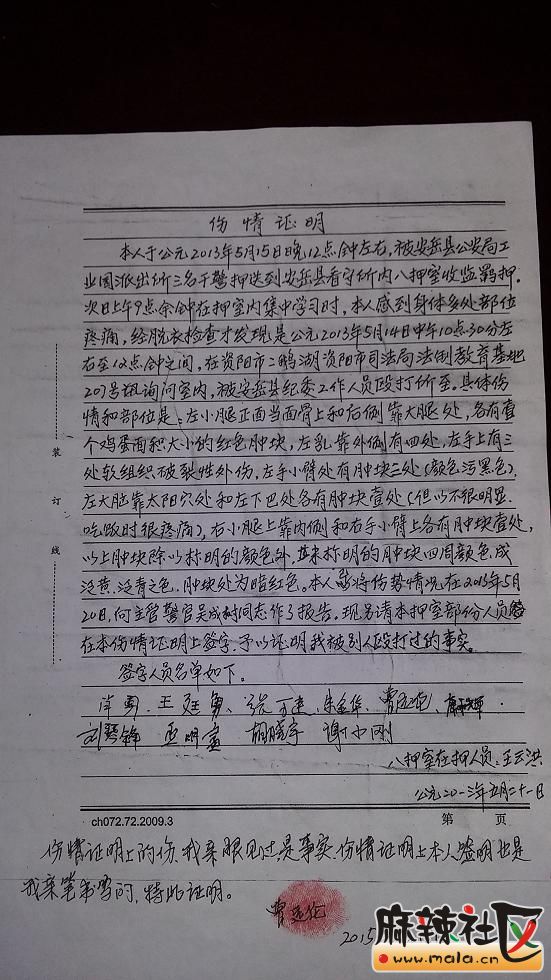 伤情证明
本人于公元2013年5月15日晚12点钟左右,被安岳县公安局工
业园派出所三名干警押送到安岳县看守所内八押室收监羁押。
次日上午9点余钟在押室内集中学习时,本人感到身体多处部位
疼痛,经脱衣检查才发现是公元2013年5月14日中午10点30分左
右至12点钟之间,在资阳市二鹅湖资阳市司法局法制教育基地
207号询问室内,被安岳县纪委工作人员殴打所至。具体伤
情和部位是:左小腿正面当面骨上和右侧靠大腿处,各有壹
个鸡蛋面积大小的红色肿块,左乳靠外侧有四处,左手上有三
处软组织破裂性外伤,左手小臂处有肿块三处(颜色污黑色),
左大脑靠太阳穴处和左下巴处各有肿块壹处(但以不很明显
吃饭时很疼痛),右小腿上靠内侧和右手小臂上各有肿块壹处,
以上肿块除以标明的颜色外,其未标明的肿块四周颜色成
泛黄、泛青之色,肿块处为暗红色。本人将伤势情况在2013年5月
20日,向主管警官吴成树同志作了报告。现另请本押室部份人员
在本伤情证明上签字,予以证明我被别人殴打过的事实。
签字人员名单如下。
王廷勇、朱金华、曹运伦
明富 胡晓宇 谢小刚
八押室在押人员:王云洪
公元二0一三年五月二十一日
ch072.72.2009.3 第 页
装
订
线
伤情证明上的伤,我亲眼见过,是事实,伤情证明上本人签明也是
我亲笔书写的,特此证明。
曹运伦
2015
麻辣社区
www.mala.cn